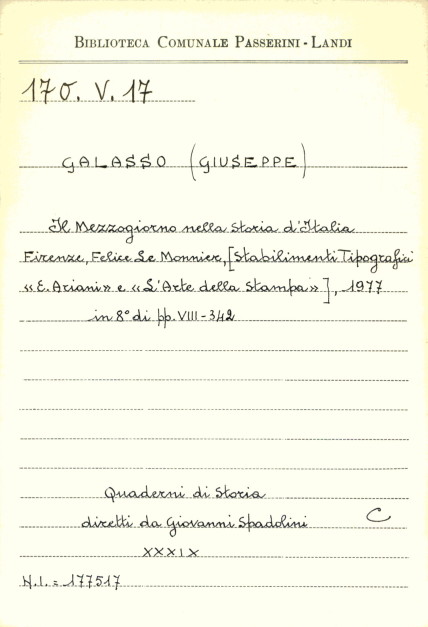 BIBLIOTECA COMUNALE PASSERINI-LANDI
170. V. 17
GALASSO (GIUSEPPE)
Il Mezzogiorno nella Storia d'Italia
Firenze, Felice Le Monnier, [Stabilimenti Tipografici
«E. Ariani» e «L'Arte della Stampa»], 1977
in 8° di pp. VIII-342
Quaderni di Storia
diretti da Giovanni Spadolini
C
XXXIX
N.I. = 177517